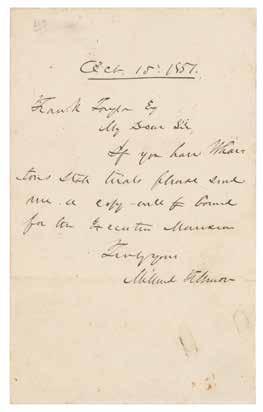 Oct. 15, 1851.
Frank Taylor Esq
My Dear Sir,
If you have Whar-
ton's State trials please send
me a copy well bound
for the Executive Mansion
Truly yours
Millard Fillmore